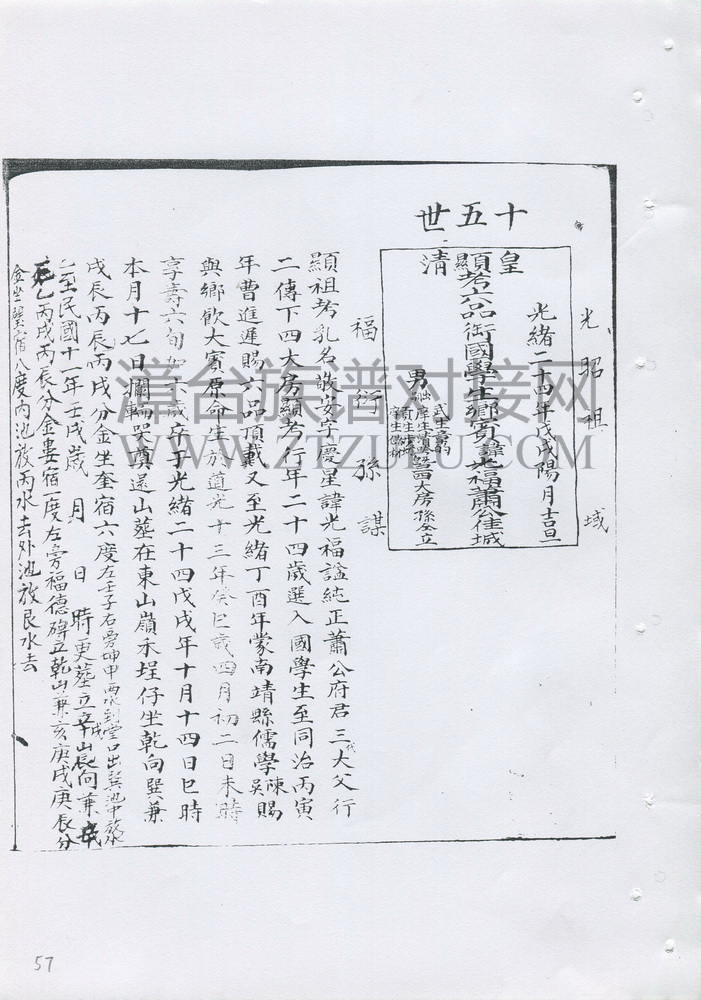 十五世
光昭祖域
光緒二十四年戊戌陽月吉旦
皇清
顯考六品銜國學生鄉賓諱光福蕭公佳城
男
四大房孫仝立
福衍孫謀
顯祖考乳名敬安字慶星諱光福謚純正蕭公府君三代大父行
二傳下四大房顯考行年二十四歲選入國學生至同治丙寅
年曹進遲賜六品頂戴又至光緒丁酉年蒙南靖縣儒學陳吳賜
與鄉飲大賓原命生於道光十三年癸巳歲四月初二日未時
享壽六旬加六歲卒于光緒二十四戊戌年十月十四日巳時
本月十七日擱輀哭奠還山塟在東山嶺禾埕仔坐乾向巽兼
戌辰丙辰丙戌分金坐奎宿六度左壬子右旁坤申兩水到堂口出巽池中放水
至民國十一年壬戌歲 月 日 時更塟立辛山辰向兼戌
乙丙戌丙辰分金婁宿一度左旁福德碑立乾山兼亥庚戌庚辰分
金坐壁宿八度內池放丙水去外池放艮水去
漳台族谱对接网
WWW.ZTZUPU.COM
57